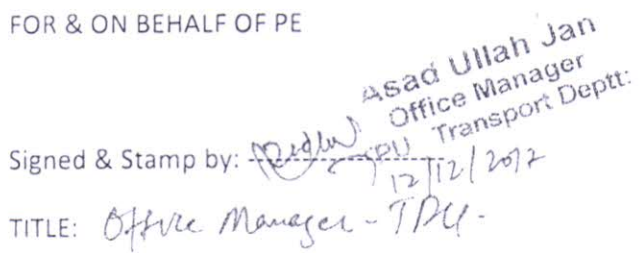 FOR & ON BEHALF OF PE
Asad Ullah Jan
Office Manager
TPU Transport Deptt:
Signed & Stamp by:
12/12/2012
TITLE: Office Manager - TPU.